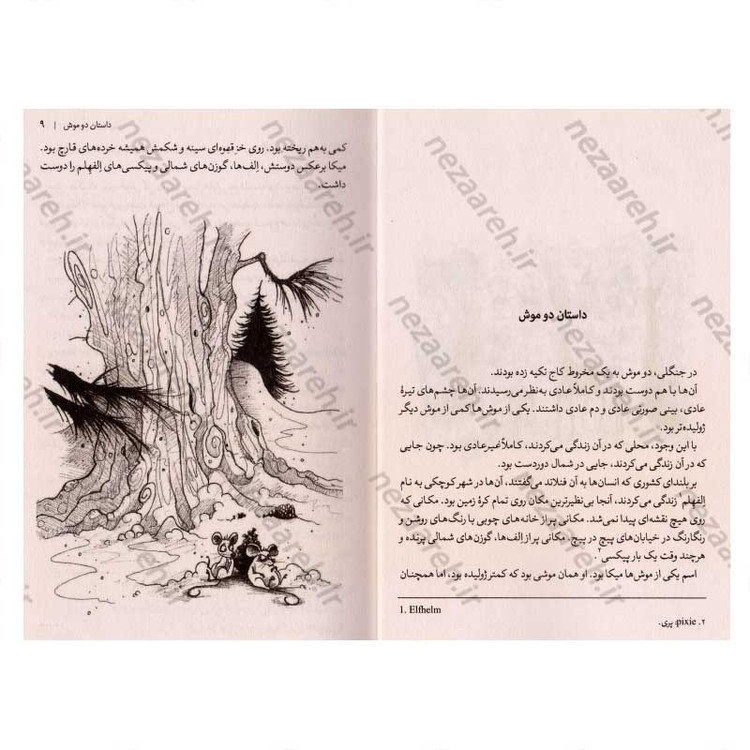 داستان دو موش
در جنگلی، دو موش به یک مخروط کاج تکیه زده بودند.
آن‌ها با هم دوست بودند و کاملاً عادی به‌نظر می‌رسیدند. آن‌ها چشم‌های تیرهٔ
عادی، بینی صورتی عادی و دم عادی داشتند. یکی از موش‌ها کمی از موش دیگر
ژولیده‌تر بود.
با این وجود، محلی که در آن زندگی می‌کردند، کاملاً غیرعادی بود. چون جایی
که در آن زندگی می‌کردند، جایی در شمال دوردست بود.
بر بلندای کشوری که انسان‌ها به آن فنلاند می‌گفتند، آن‌ها در شهر کوچکی به نام
اِلفهِلم۱ زندگی می‌کردند، آنجا بی‌نظیرترین مکان روی تمام کرهٔ زمین بود. مکانی که
روی هیچ نقشه‌ای پیدا نمی‌شد. مکانی پر از خانه‌های چوبی با رنگ‌های روشن و
رنگارنگ در خیابان‌های پیچ در پیچ. مکانی پر از اِلف‌ها، گوزن‌های شمالی پرنده و
هرچند وقت یک بار پیکسی۲
اسم یکی از موش‌ها میکا بود. او همان موشی بود که کمتر ژولیده بود، اما همچنان
1. Elfhelm
۲. pixie: پری.
داستان دو موش | ۹
کمی به‌هم ریخته بود. روی خز قهوه‌ای سینه و شکمش همیشه خرده‌های قارچ بود.
میکا برعکس دوستش، اِلف‌ها، گوزن‌های شمالی و پیکسی‌های اِلفهِلم را دوست
داشت.
nezaareh.ir